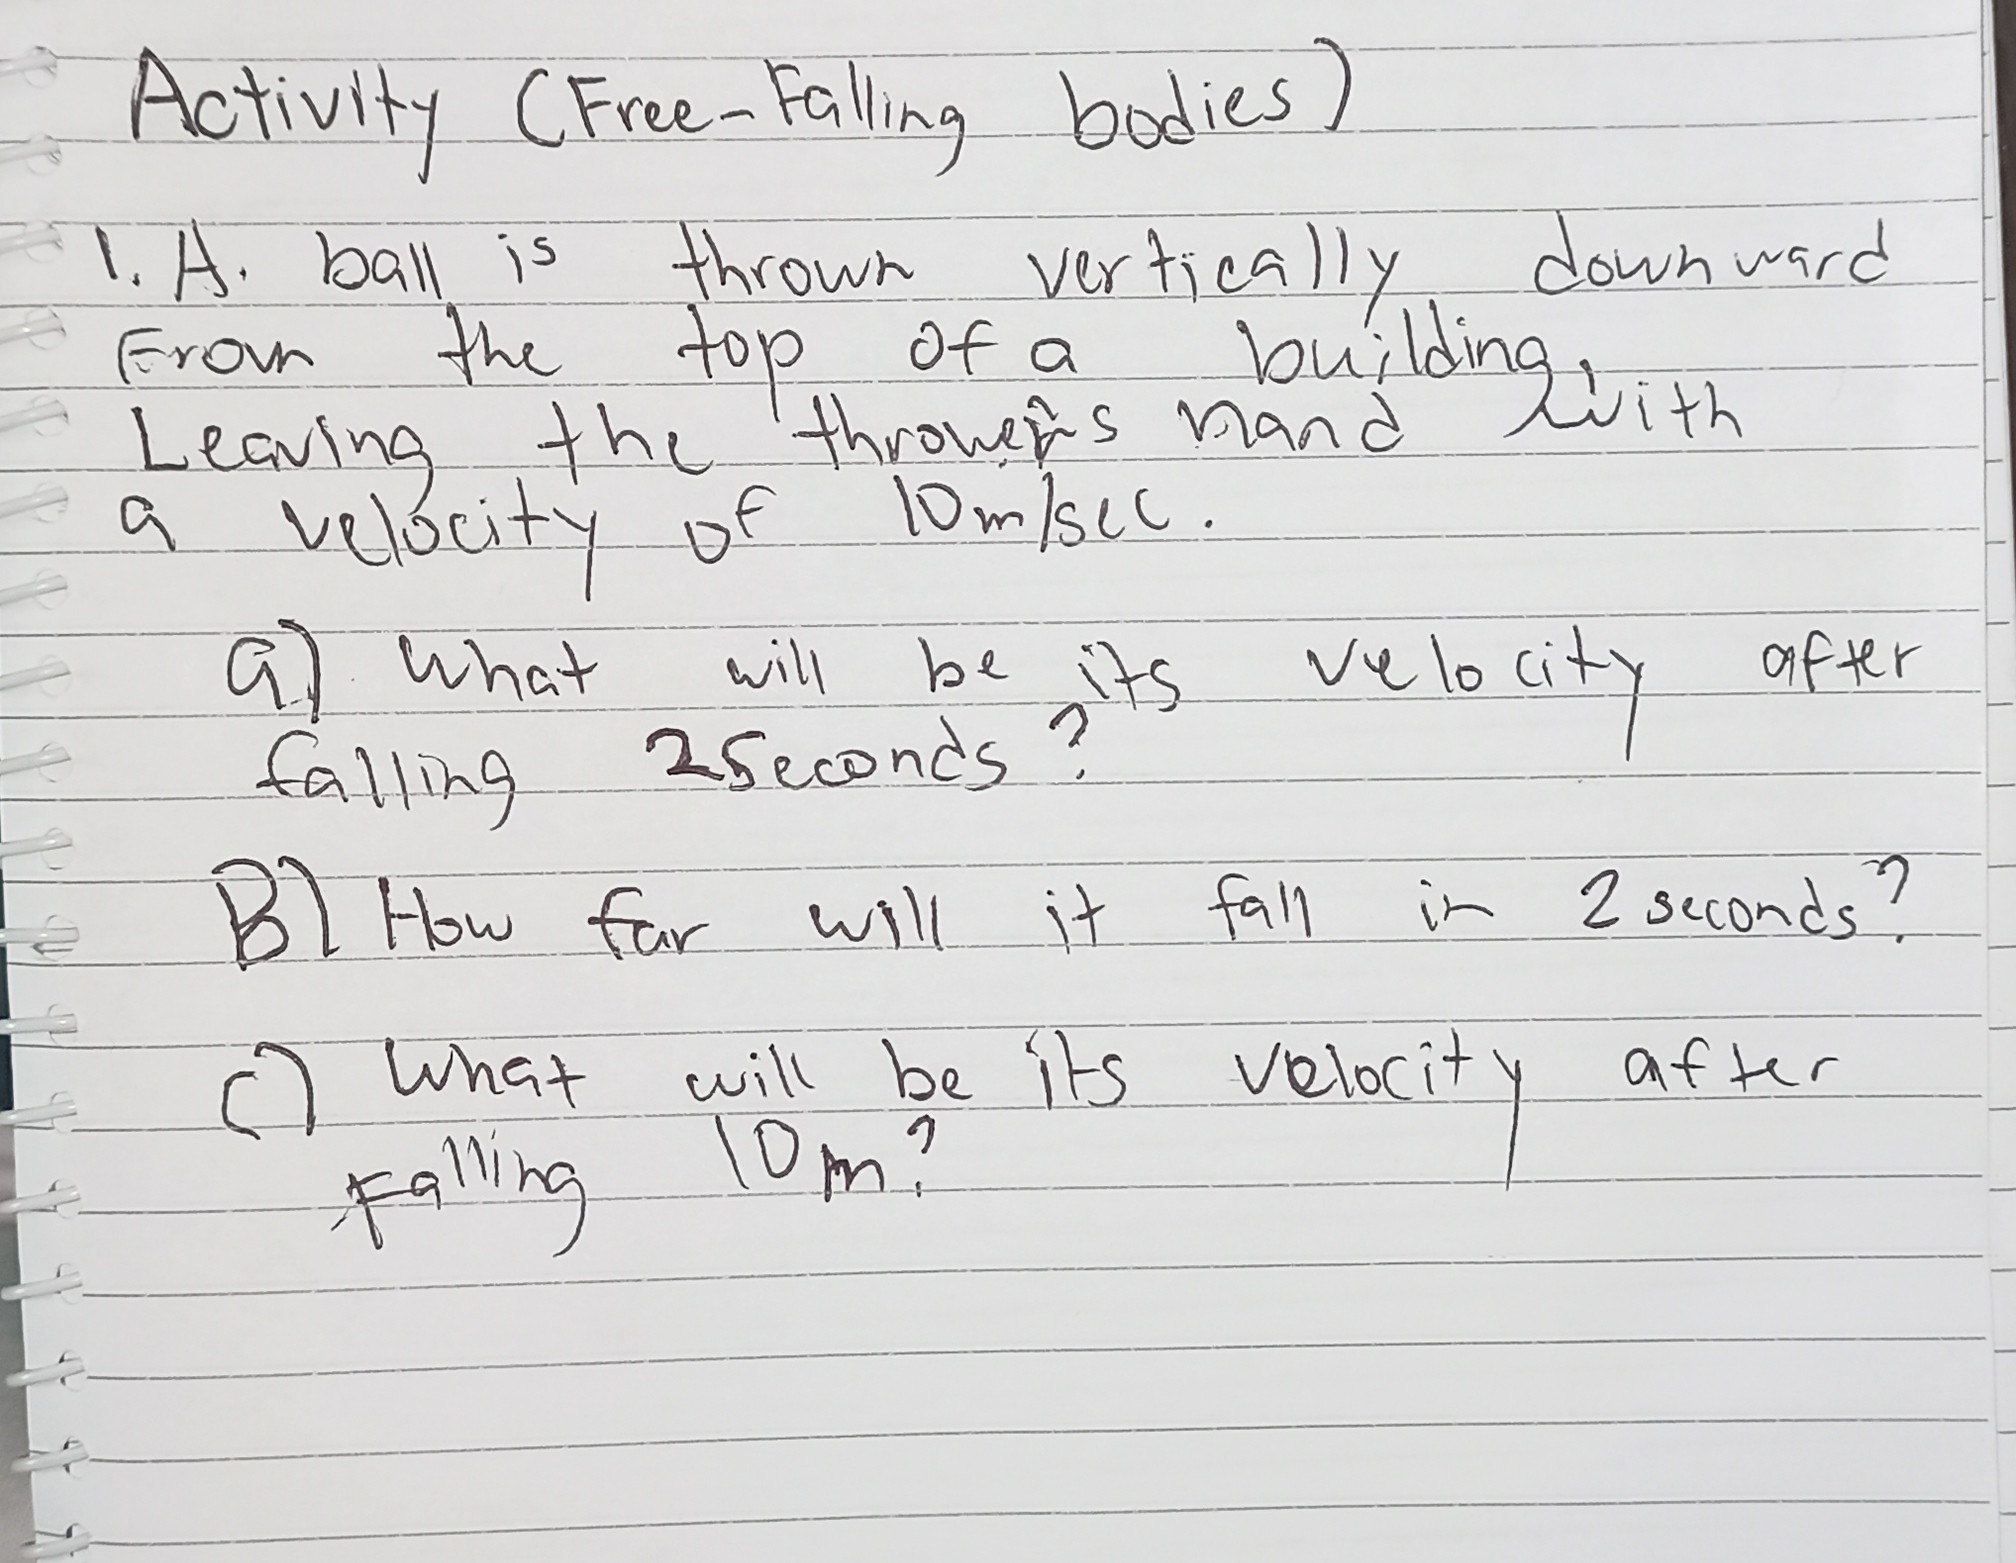 Activity (Free-Falling bodies)
1. A. ball is thrown vertically downward
From the top of a building,
Leaving the thrower's hand with
a velocity of 10m/sec.
a) What will be its velocity after
falling 2 seconds?
B) How far will it fall in 2 seconds?
C) What will be its velocity after
Falling 10m?